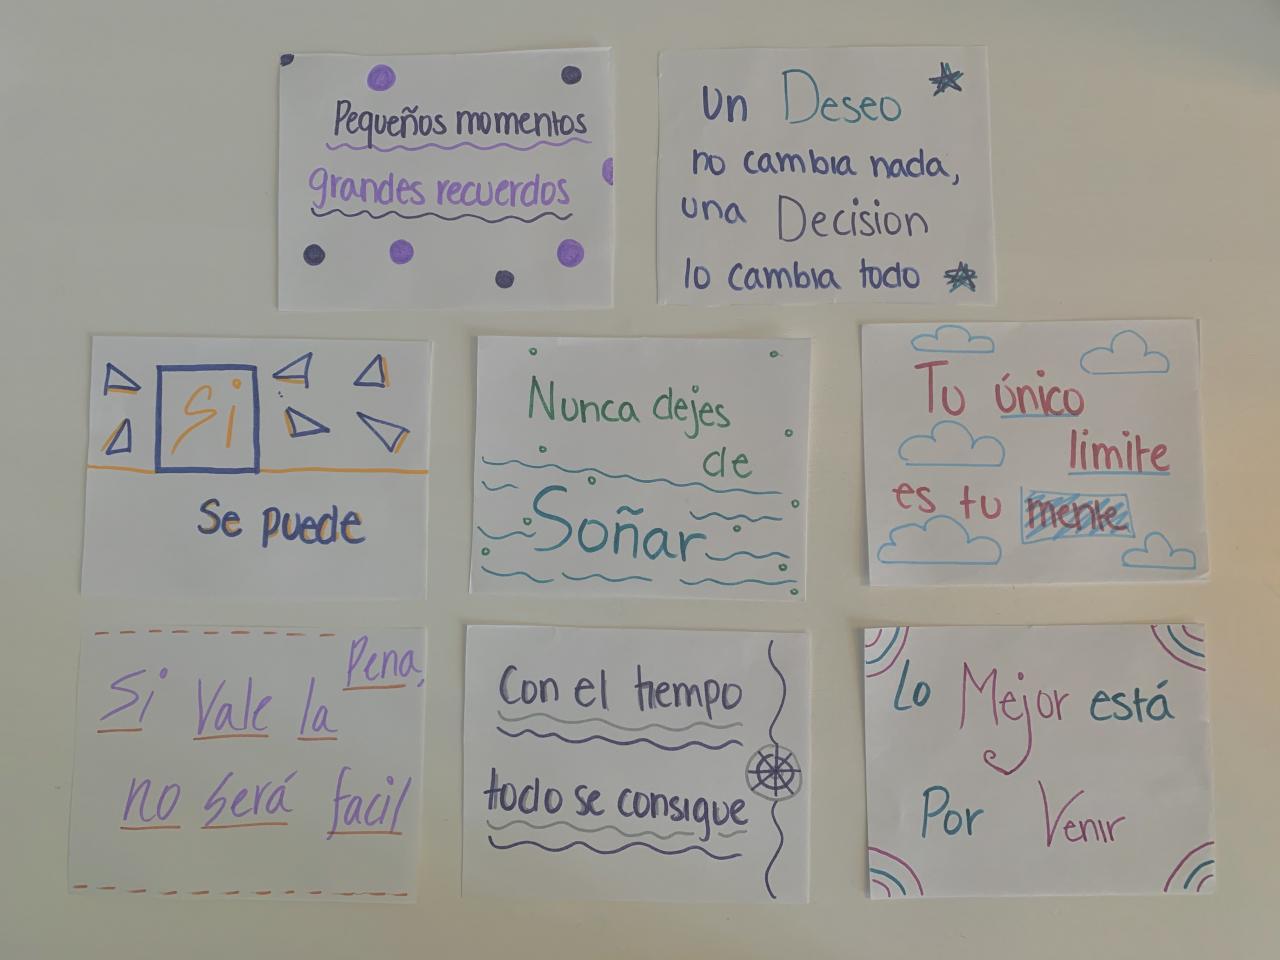 Pequeños momentos
grandes recuerdos
un Deseo
no cambia nada,
una Decision
lo cambia todo
Si
Se puede
Nunca dejes
de
Soñar
Tu único
limite
es tu mente
Si Vale la Pena,
no será facil
Con el tiempo
todo se consigue
Lo Mejor está
Por Venir